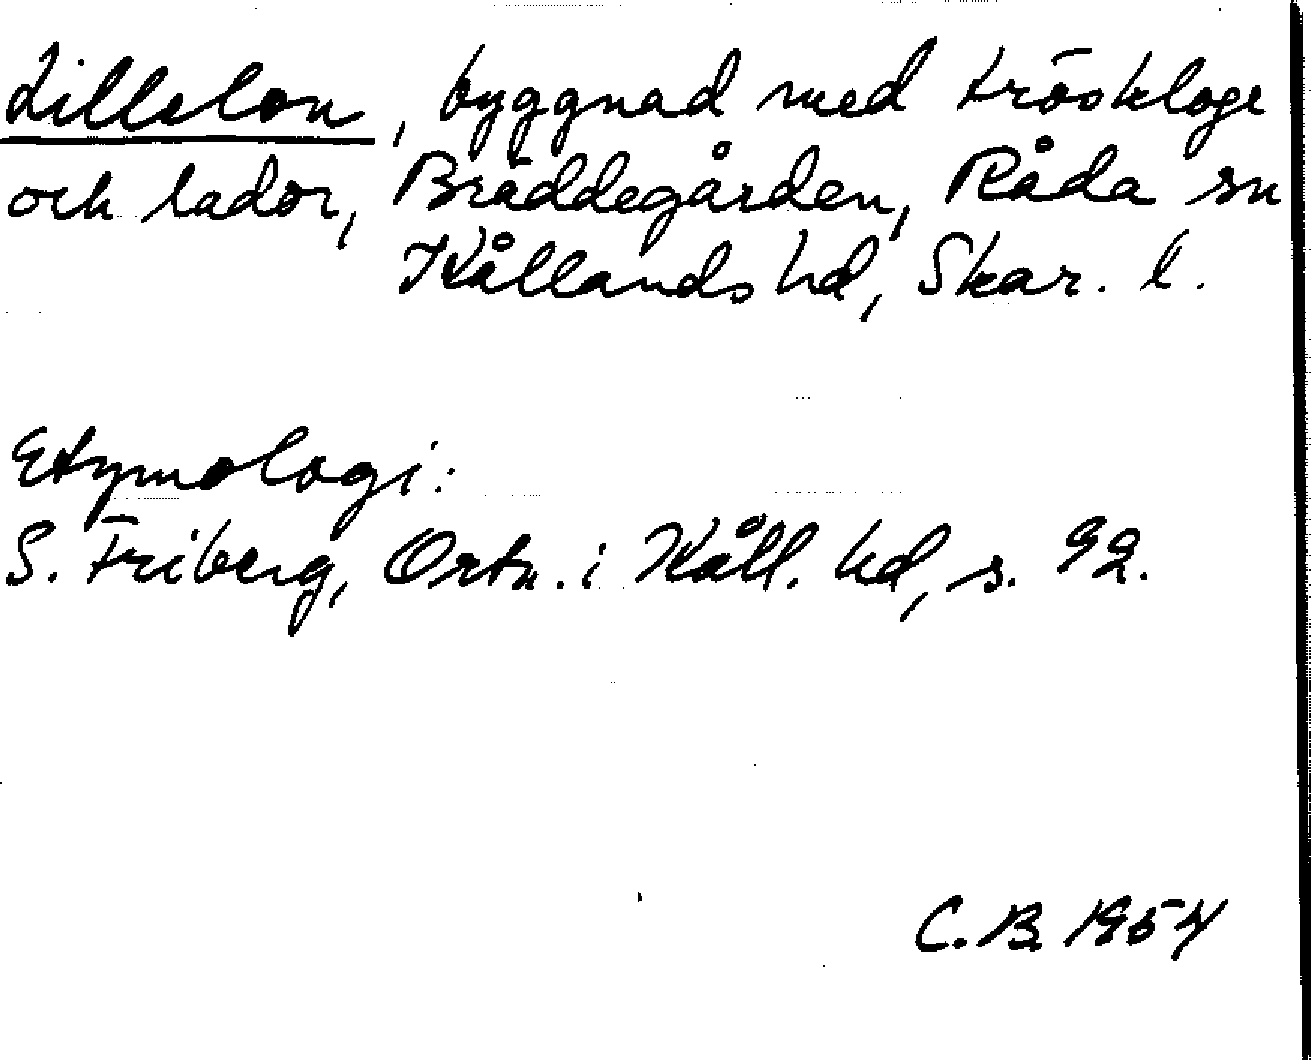 Lillelon, byggnad med tröskloge
och lador, Bräddegården, Råda sn
Kållands hd, Skar. l.
Etymologi:
S. Friberg, Ortn. i Kåll. hd, s. 92.
C.B. 1954